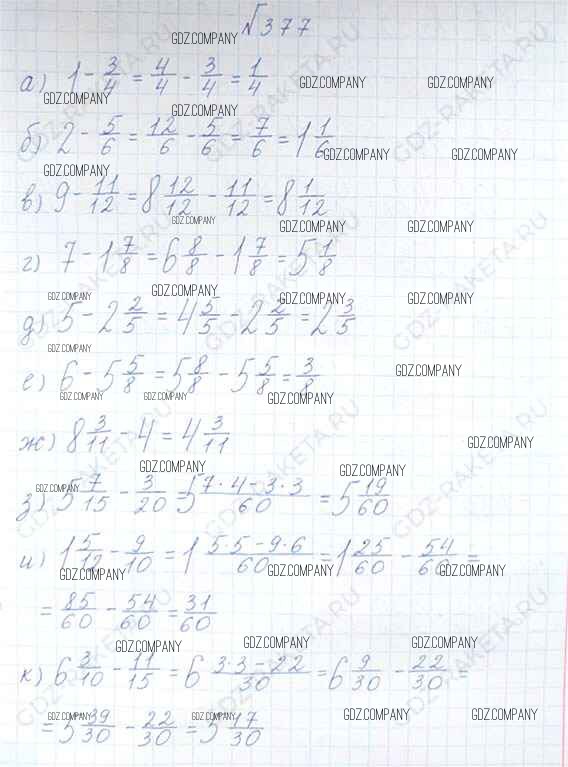 №377
а) 1 - 3/4 = 4/4 - 3/4 = 1/4
б) 2 - 5/6 = 12/6 - 5/6 = 7/6 = 1 1/6
в) 9 - 11/12 = 8 12/12 - 11/12 = 8 1/12
г) 7 - 1 7/8 = 6 8/8 - 1 7/8 = 5 1/8
д) 5 - 2 2/5 = 4 5/5 - 2 2/5 = 2 3/5
е) 6 - 5 5/8 = 5 8/8 - 5 5/8 = 3/8
ж) 8 3/11 - 4 = 4 3/11
з) 5 7/15 - 3/20 = 5 (7·4-3·3)/60 = 5 19/60
и) 1 5/12 - 9/10 = 1 (5·5-9·6)/60 = 1 25/60 - 54/60 =
= 85/60 - 54/60 = 31/60
к) 6 3/10 - 11/15 = 6 (3·3-22)/30 = 6 9/30 - 22/30 =
= 5 39/30 - 22/30 = 5 17/30
GDZ.COMPANY
GDZ-RAKETA.RU